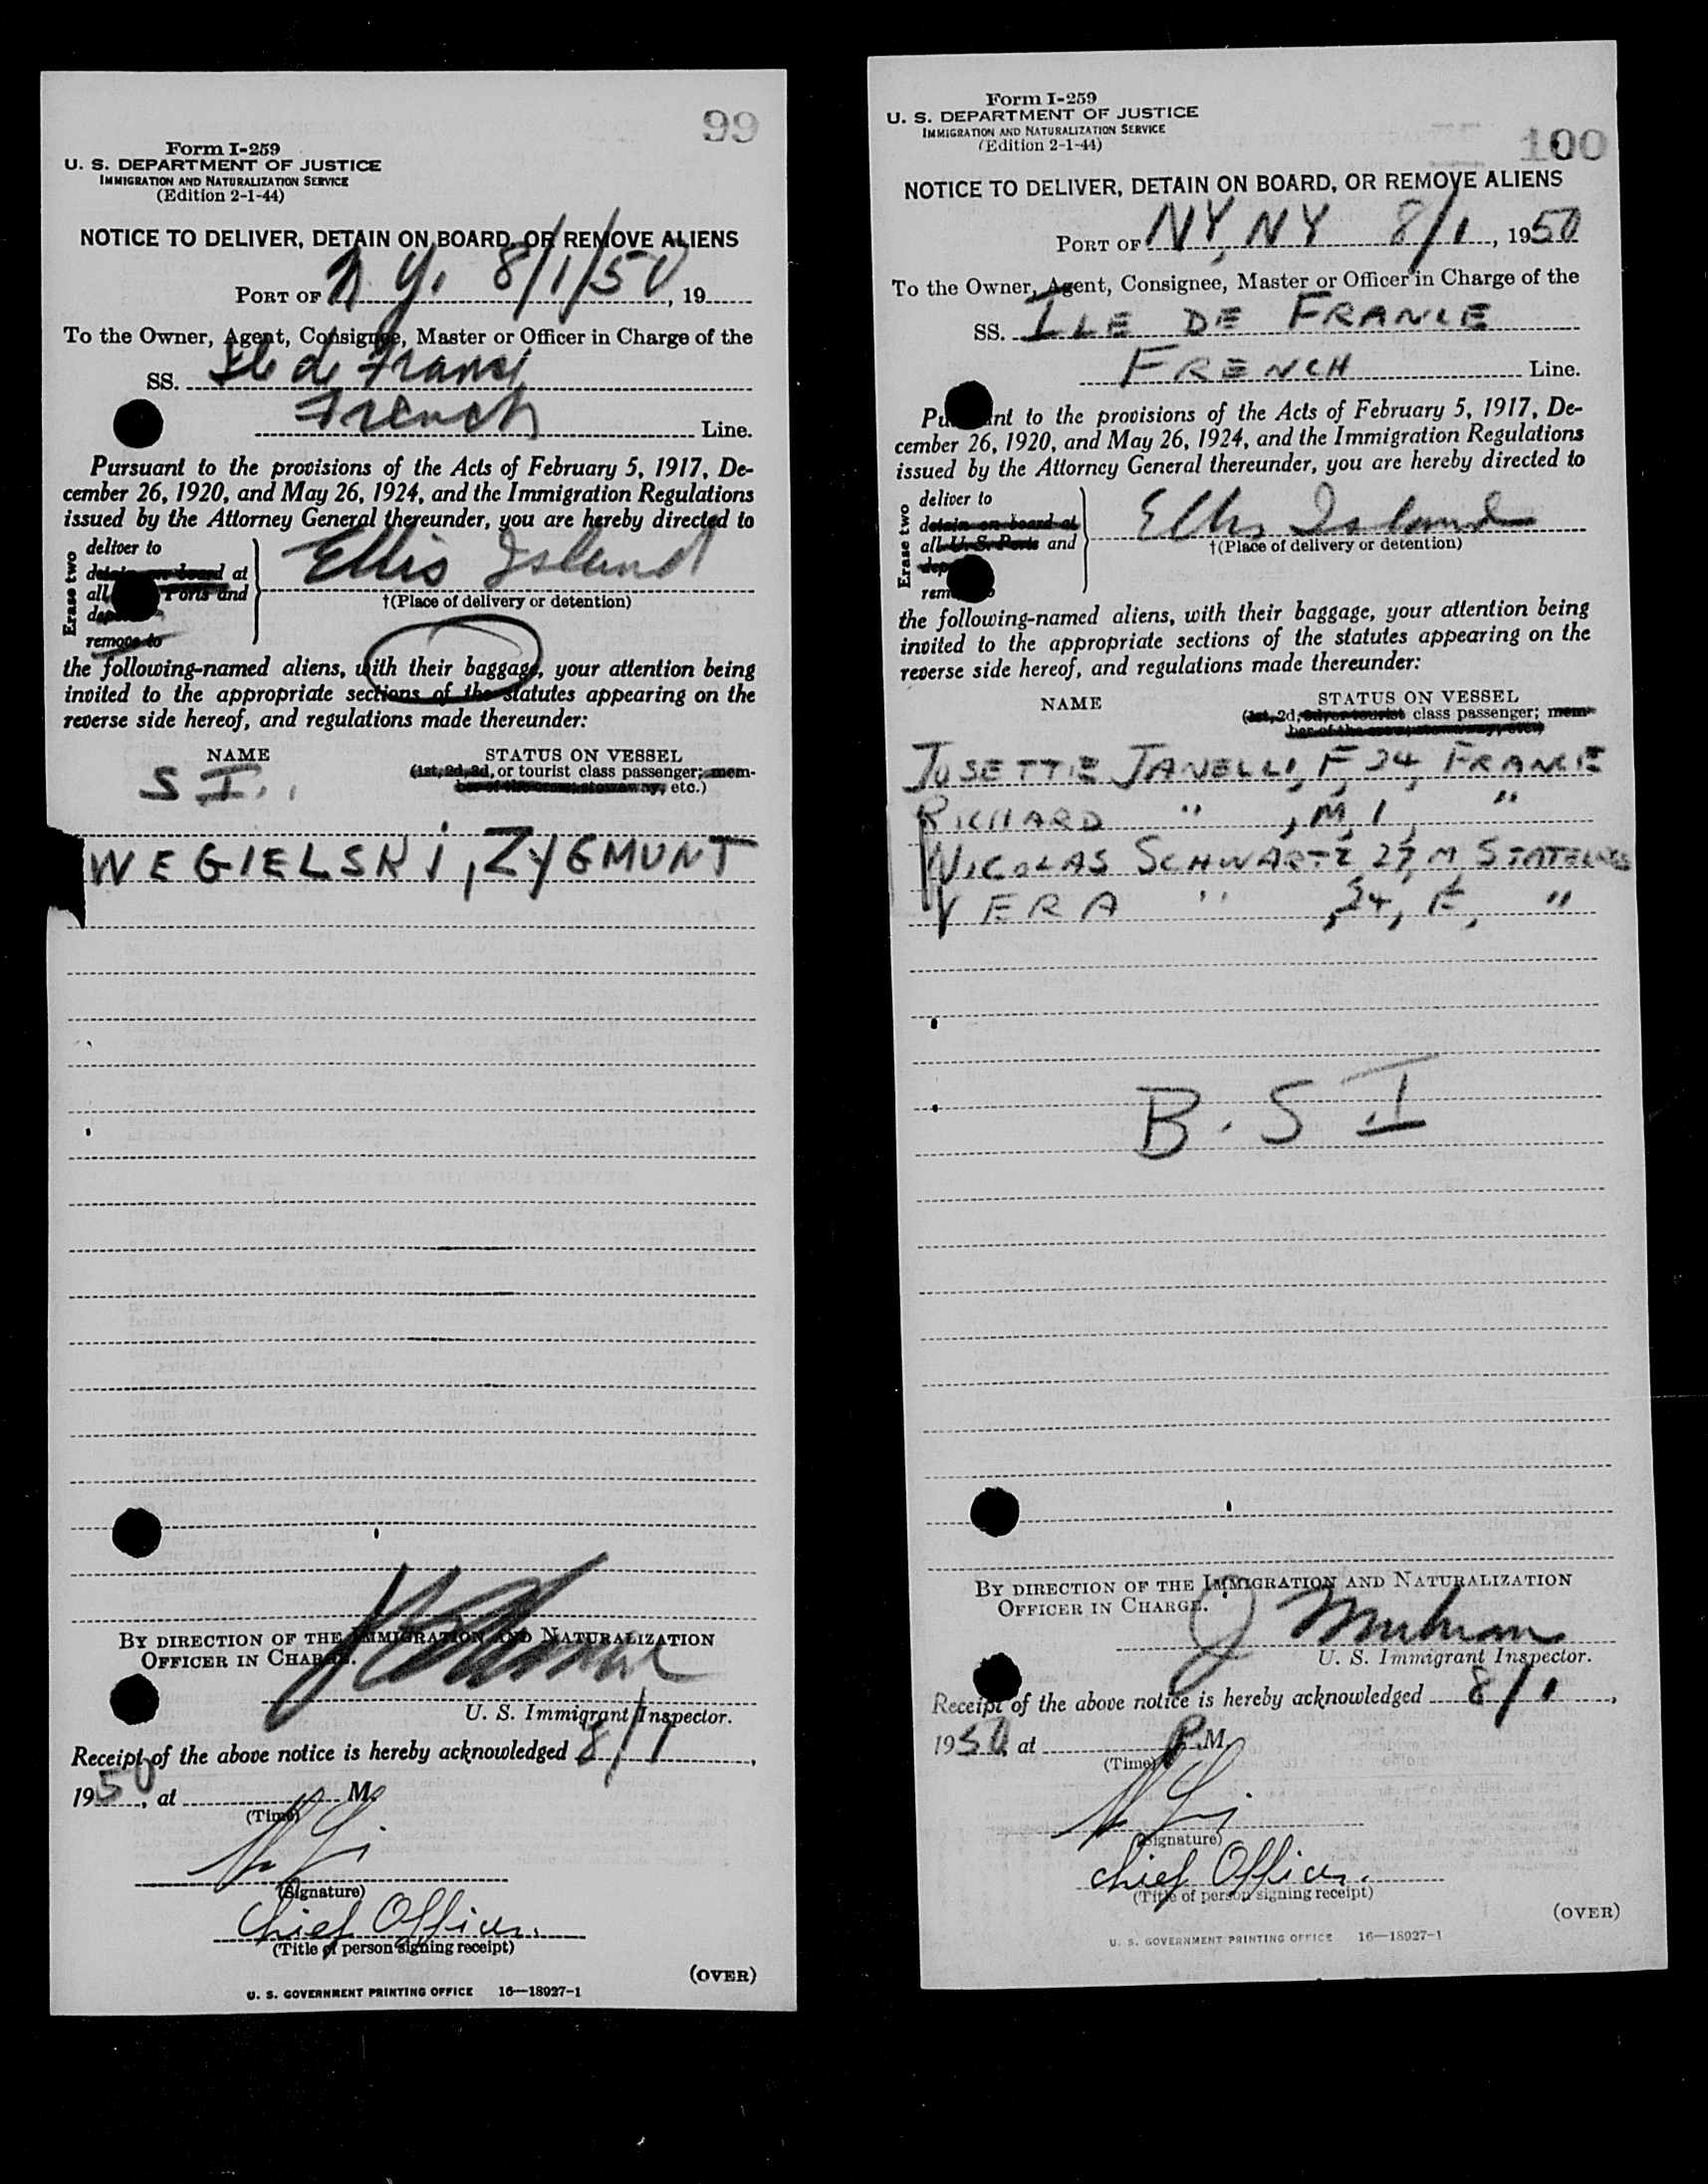 99
Form I-259
U. S. DEPARTMENT OF JUSTICE
IMMIGRATION AND NATURALIZATION SERVICE
(Edition 2-1-44)
NOTICE TO DELIVER, DETAIN ON BOARD, OR REMOVE ALIENS
PORT OF N. Y. 8/1/50, 19
To the Owner, Agent, Consignee, Master or Officer in Charge of the
SS. Ile de France
French Line.
Pursuant to the provisions of the Acts of February 5, 1917, De-
cember 26, 1920, and May 26, 1924, and the Immigration Regulations
issued by the Attorney General thereunder, you are hereby directed to
Erase two
deliver to
detain on board at
all Ports and
remove to
Ellis Island
†(Place of delivery or detention)
the following-named aliens, with their baggage, your attention being
invited to the appropriate sections of the statutes appearing on the
reverse side hereof, and regulations made thereunder:
NAME STATUS ON VESSEL
(1st, 2d, 3d, or tourist class passenger; mem-
ber of the crew, stowaway, etc.)
S I.
WEGIELSKI, ZYGMUNT
BY DIRECTION OF THE IMMIGRATION AND NATURALIZATION
OFFICER IN CHARGE.
U. S. Immigrant Inspector.
Receipt of the above notice is hereby acknowledged 8/1,
1950, at M.
(Time)
(Signature)
Chief Officer.
(Title of person signing receipt)
(OVER)
U. S. GOVERNMENT PRINTING OFFICE 16—18927-1
Form I-259
U. S. DEPARTMENT OF JUSTICE
IMMIGRATION AND NATURALIZATION SERVICE
(Edition 2-1-44)
100
NOTICE TO DELIVER, DETAIN ON BOARD, OR REMOVE ALIENS
PORT OF NY, NY 8/1, 1950
To the Owner, Agent, Consignee, Master or Officer in Charge of the
SS. ILE DE FRANCE
FRENCH Line.
Pursuant to the provisions of the Acts of February 5, 1917, De-
cember 26, 1920, and May 26, 1924, and the Immigration Regulations
issued by the Attorney General thereunder, you are hereby directed to
Erase two
deliver to
detain on board at
all U. S. Ports and
Ellis Island
†(Place of delivery or detention)
the following-named aliens, with their baggage, your attention being
invited to the appropriate sections of the statutes appearing on the
reverse side hereof, and regulations made thereunder:
NAME STATUS ON VESSEL
(1st, 2d, 3d, or tourist class passenger; mem-
ber of the crew, stowaway, etc.)
JOSETTE JANELLI, F, 24, FRANCE
RICHARD " , M, 1, "
NICOLAS SCHWARTZ 27, M, STATELESS
VERA " , 24, F, "
B. S I
BY DIRECTION OF THE IMMIGRATION AND NATURALIZATION
OFFICER IN CHARGE.
U. S. Immigrant Inspector.
Receipt of the above notice is hereby acknowledged 8/1,
1950, at P.M.
(Time)
(Signature)
Chief Officer.
(Title of person signing receipt)
(OVER)
U. S. GOVERNMENT PRINTING OFFICE 16—18927-1